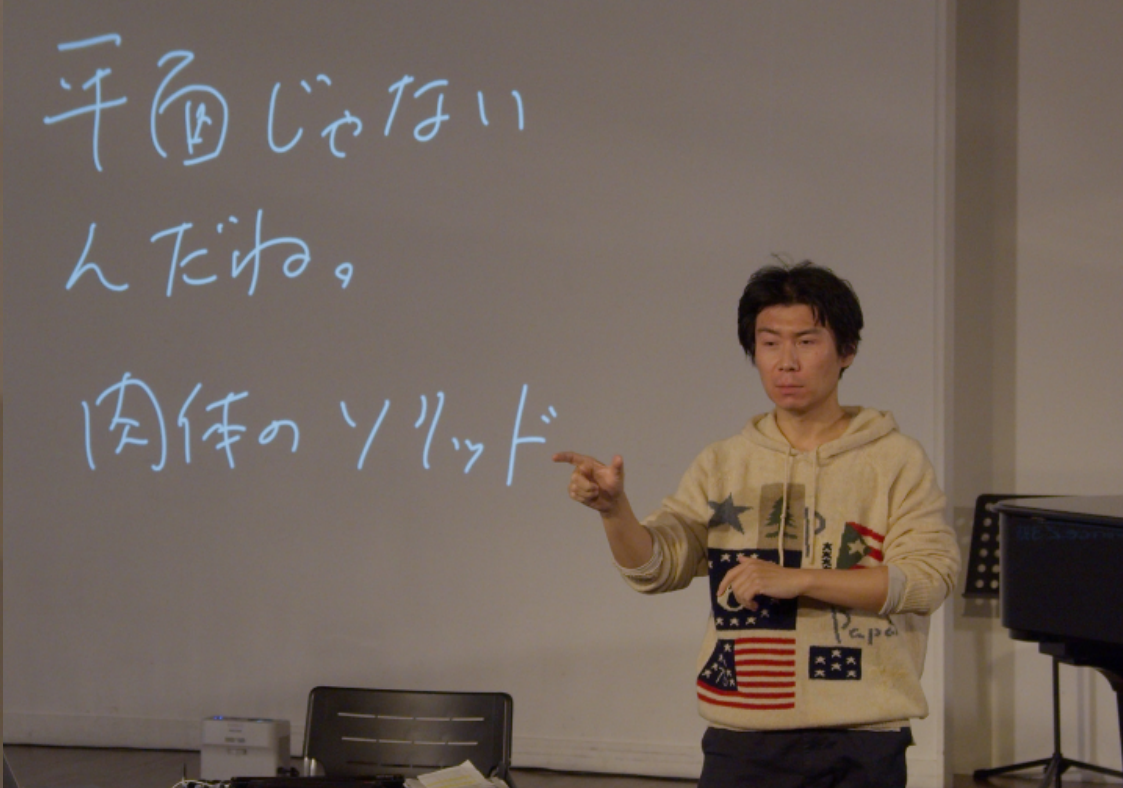 平面じゃない
んだね。
肉体のソリッド
Papa